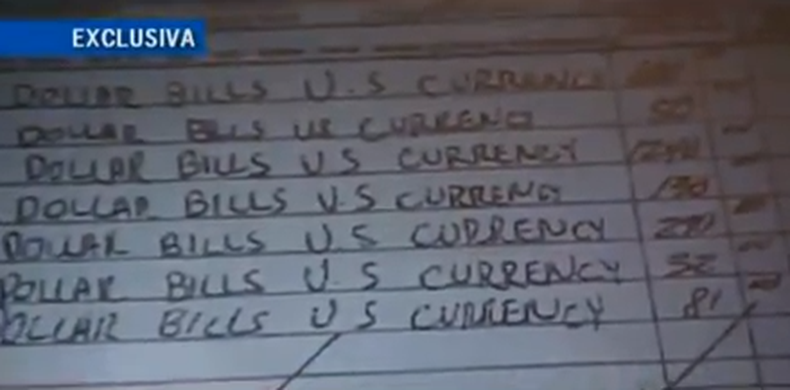 EXCLUSIVA
DOLLAR BILLS U.S CURRENCY
DOLLAR BILLS US CURRENC 50
DOLLAR BILLS US CURRENCY
DOLLAR BILLS US CURRENCY
DOLLAR BILLS U.S CURRENCY
DOLLAR BILLS U.S CURRENCY 52
DOLLAR BILLS US CURRENCY 81